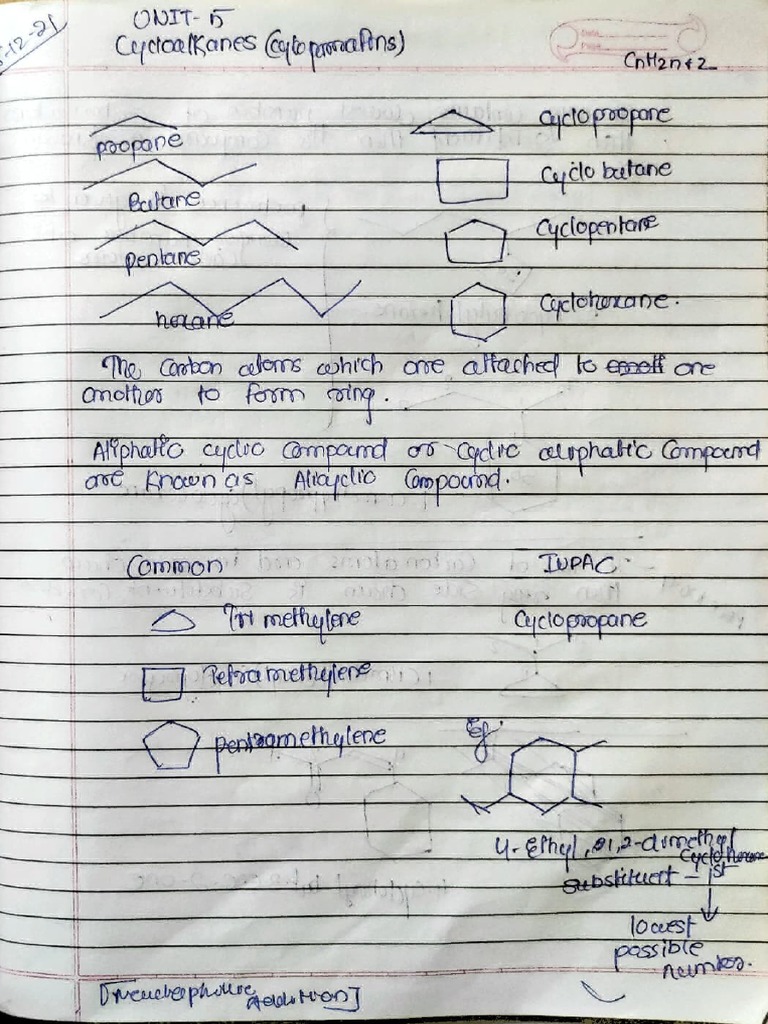 5-12-21
UNIT-5
Cycloalkanes (Cycloparrafins)
CnH2n+2
propane
Cyclopropane
Butane
Cyclobutane
pentane
Cyclopentane
hexane
Cyclohexane.
The Carbon atoms which are attached to one
another to form ring.
Aliphatic cyclic Compound or Cyclic aliphatic Compound
are Known as Alicyclic Compound.
Common
IUPAC
Tri methylene
Cyclopropane
Tetramethylene
pentamethylene
Eg:
4-Ethyl, 1,2-dimethyl
Cyclohexane
substituent - 1st
lowest
possible
number.
[Nucleophilic Addition]